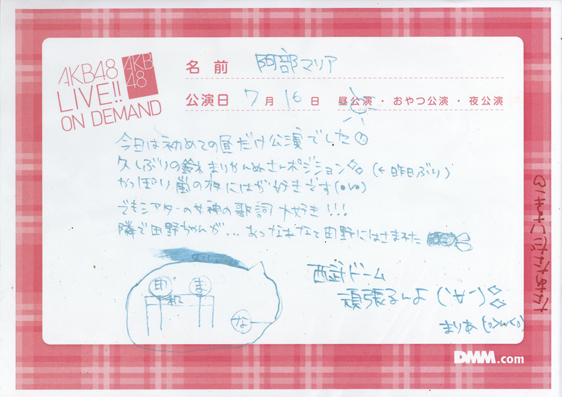 AKB48
LIVE!!
ON DEMAND
AKB
48
名前 阿部マリア
公演日 7月16日 昼公演・おやつ公演・夜公演
今日は初めての昼だけ公演でした
久しぶりの鈴木まりやんぬさんポジション (←昨日ぶり)
やっぱり嵐の夜にはが好きです
でもシアターの女神の歌詞大好き!!!
隣で田野ちゃんが…
田野にはさまれた
な
西武ドーム
頑張るんよ
まりあ
DMM.com